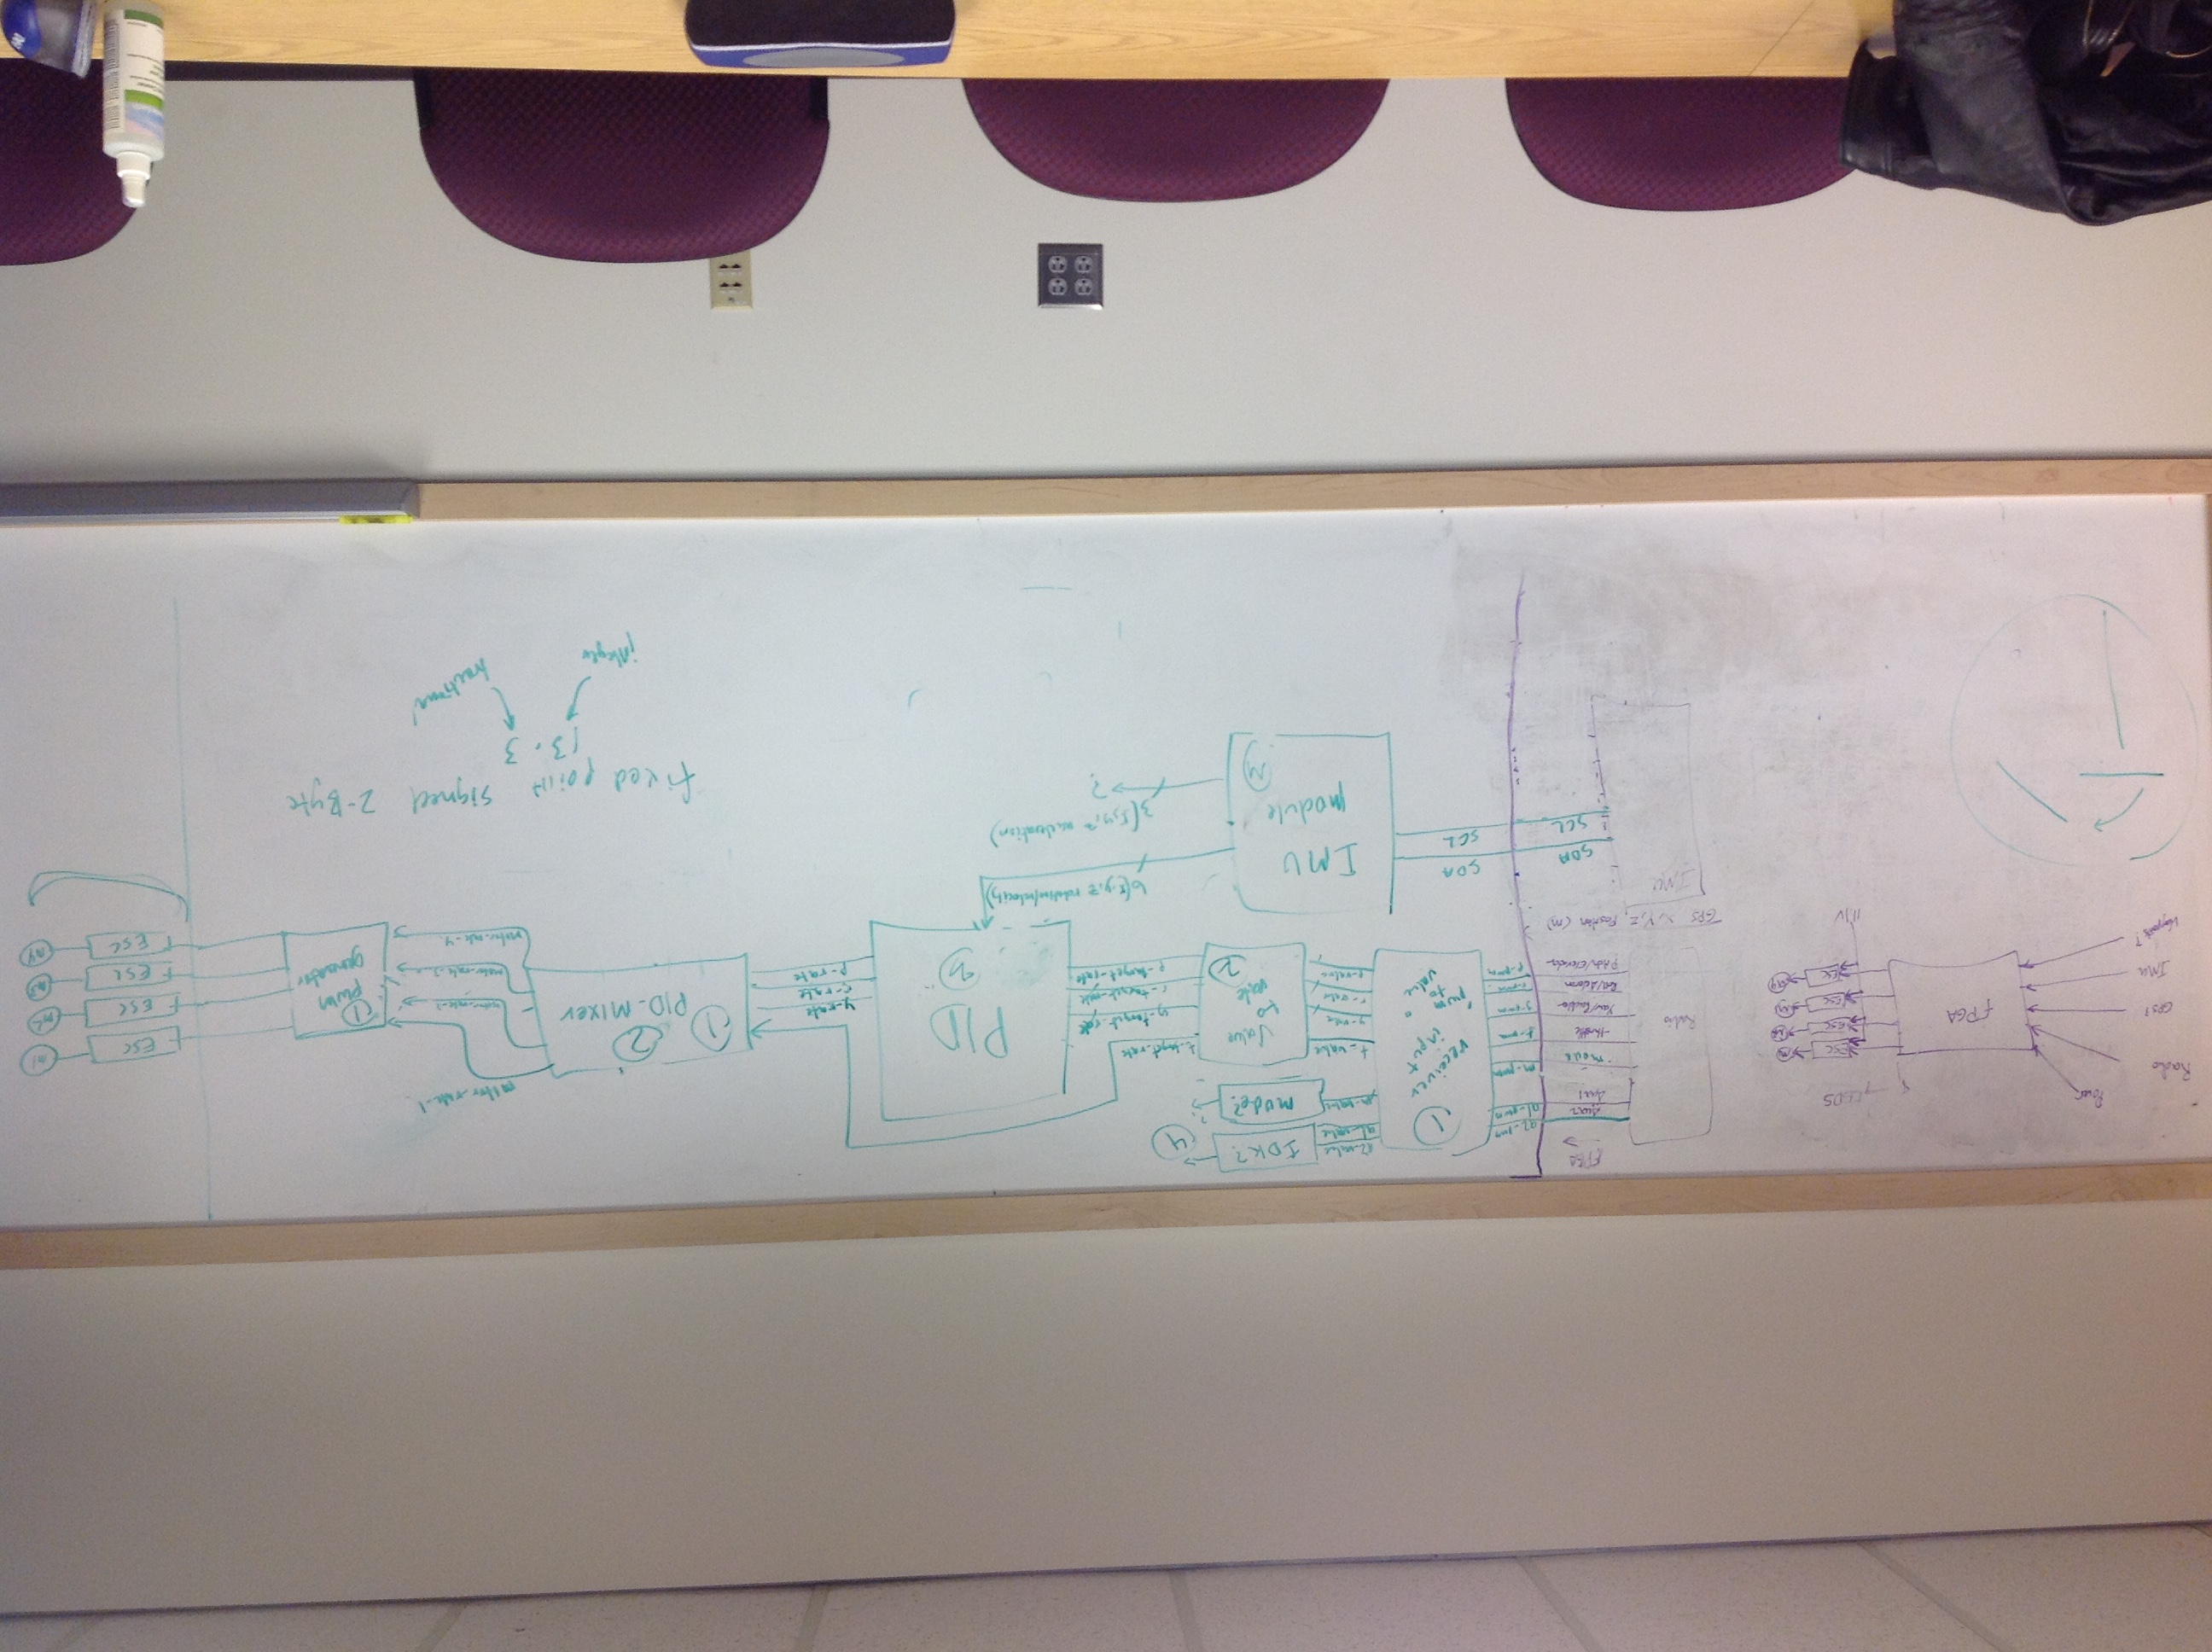 Power
LEDS
Radio
GPS?
IMU
Waypoints?
fPGA
ESC
ESC
ESC
ESC
11.1V
FPGA
Radio
Aux2
Aux1
mode
throttle
Yaw/Rudder
Pitch/Elevator
a2-pwm
a1-pwm
m-pwm
t-pwm
y-pwm
r-pwm
p-pwm
1
receiver
input
pwm
to
value
a2-value
a1-value
m-value
t-value
y-value
r-value
p-value
IDK?
4
mode?
?
Value
to
rate
2
t-target-rate
y-target-rate
r-target-rate
p-target-rate
PID
3
y-rate
r-rate
p-rate
1 2
PID-MIXER
motor-rate-1
motor-rate-2
motor-rate-3
motor-rate-4
1
PWM
generator
ESC
ESC
ESC
ESC
m1
m2
m3
m4
GPS X,Y,Z, Position (m)
IMU
SDA
SCL
SDA
SCL
IMU
module
6(x,y,z rotation/velocity)
3(x,y,z acceleration)
?
fixed point signed 2-Byte
13.3
integer
fractional